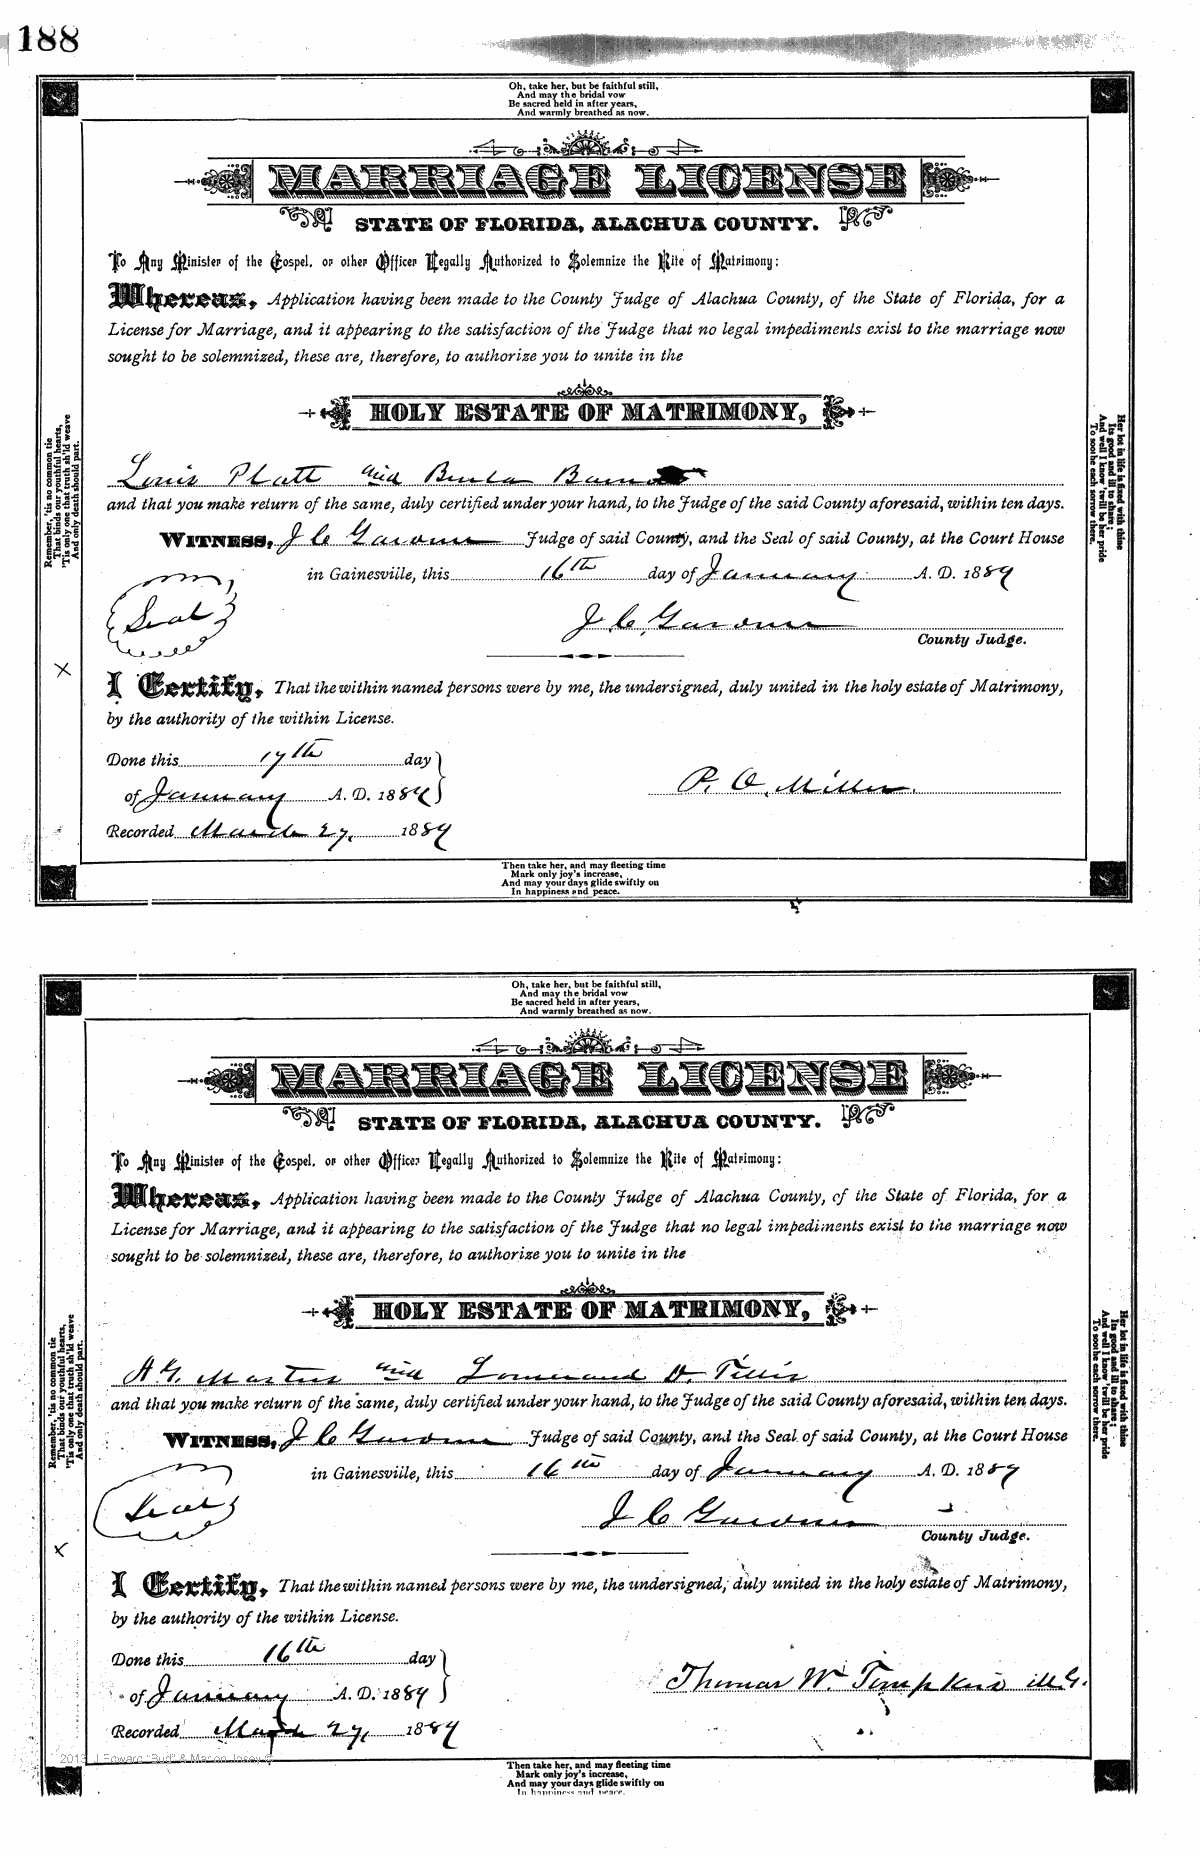 188
Oh, take her, but be faithful still,
And may the bridal vow
Be sacred held in after years,
And warmly breathed as now.
MARRIAGE LICENSE
STATE OF FLORIDA, ALACHUA COUNTY.
To Any Minister of the Gospel, or other Officer Legally Authorized to Solemnize the Rite of Matrimony:
Whereas, Application having been made to the County Judge of Alachua County, of the State of Florida, for a
License for Marriage, and it appearing to the satisfaction of the Judge that no legal impediments exist to the marriage now
sought to be solemnized, these are, therefore, to authorize you to unite in the
HOLY ESTATE OF MATRIMONY,
Louis Platt and
and that you make return of the same, duly certified under your hand, to the Judge of the said County aforesaid, within ten days.
WITNESS, J C Gardner Judge of said County, and the Seal of said County, at the Court House
in Gainesville, this 16th day of January A. D. 1889
Seal
J. C. Gardner
County Judge.
X
I Certify, That the within named persons were by me, the undersigned, duly united in the holy estate of Matrimony,
by the authority of the within License.
Done this 17th day
of January A. D. 1889
P. O. Miller.
Recorded March 27, 1889
Then take her, and may fleeting time
Mark only joy's increase,
And may your days glide swiftly on
In happiness and peace.
Remember, 'tis no common tie
That binds our youthful hearts,
'Tis only one that truth sh'ld weave
And only death should part.
Her lot in life is fixed with thine
Its good and ill to share;
And well I know 'twill be her pride
To soothe each sorrow there.
Oh, take her, but be faithful still,
And may the bridal vow
Be sacred held in after years,
And warmly breathed as now.
MARRIAGE LICENSE
STATE OF FLORIDA, ALACHUA COUNTY.
To Any Minister of the Gospel, or other Officer Legally Authorized to Solemnize the Rite of Matrimony:
Whereas, Application having been made to the County Judge of Alachua County, of the State of Florida, for a
License for Marriage, and it appearing to the satisfaction of the Judge that no legal impediments exist to the marriage now
sought to be solemnized, these are, therefore, to authorize you to unite in the
HOLY ESTATE OF MATRIMONY,
and D. Tillis
and that you make return of the same, duly certified under your hand, to the Judge of the said County aforesaid, within ten days.
WITNESS, J C Gardner Judge of said County, and the Seal of said County, at the Court House
in Gainesville, this 16th day of January A. D. 1889
Seal
J C Gardner
County Judge.
X
I Certify, That the within named persons were by me, the undersigned, duly united in the holy estate of Matrimony,
by the authority of the within License.
Done this 16th day
of January A. D. 1889
Thomas W. Tompkins M.G.
Recorded March 27, 1889
Then take her, and may fleeting time
Mark only joy's increase,
And may your days glide swiftly on
In happiness and peace.
Remember, 'tis no common tie
That binds our youthful hearts,
'Tis only one that truth sh'ld weave
And only death should part.
Her lot in life is fixed with thine
Its good and ill to share;
And well I know 'twill be her pride
To soothe each sorrow there.